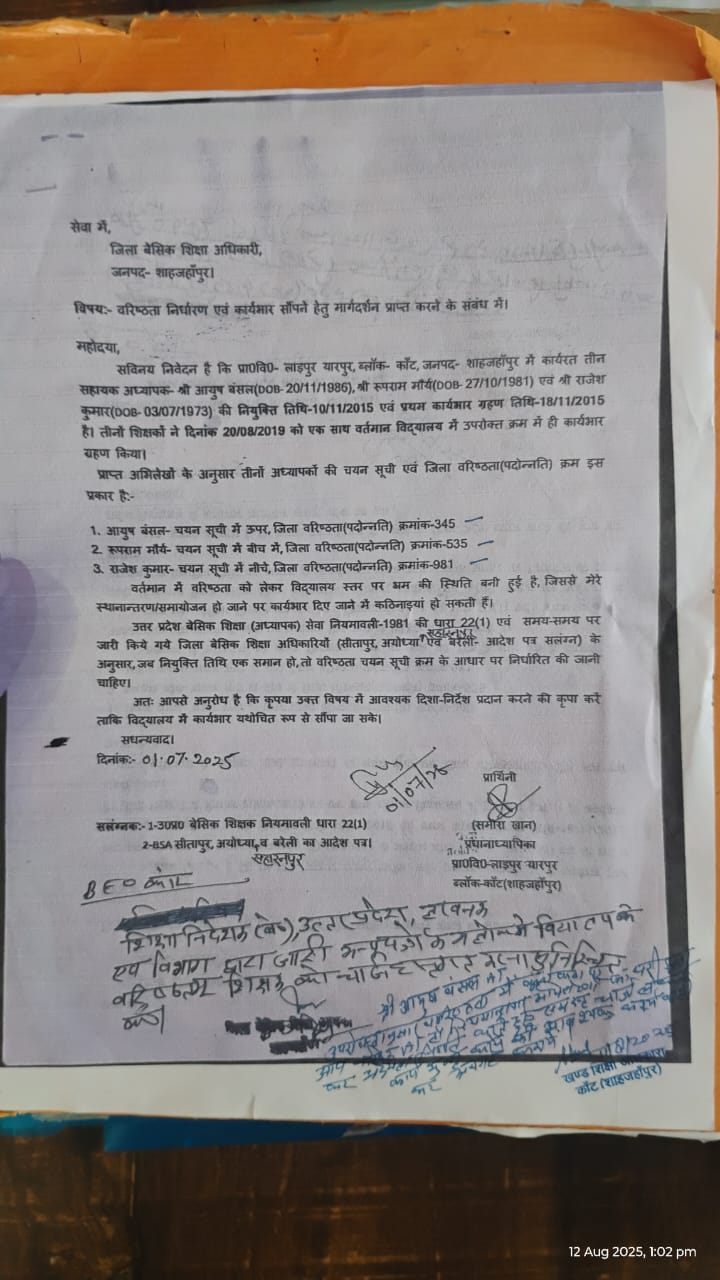 सेवा में,
जिला बेसिक शिक्षा अधिकारी,
जनपद- शाहजहाँपुर।
विषय:- वरिष्ठता निर्धारण एवं कार्यभार सौंपने हेतु मार्गदर्शन प्राप्त करने के संबंध में।
महोदया,
सविनय निवेदन है कि प्रा0वि0- लाड़पुर यारपुर, ब्लॉक- काँट, जनपद- शाहजहाँपुर में कार्यरत तीन
सहायक अध्यापक- श्री आयुष बंसल(DOB- 20/11/1986), श्री रूपराम मौर्य(DOB- 27/10/1981) एवं श्री राजेश
कुमार(DOB- 03/07/1973) की नियुक्ति तिथि-10/11/2015 एवं प्रथम कार्यभार ग्रहण तिथि-18/11/2015
है। तीनों शिक्षकों ने दिनांक 20/08/2019 को एक साथ वर्तमान विद्यालय में उपरोक्त क्रम में ही कार्यभार
ग्रहण किया।
प्राप्त अभिलेखों के अनुसार तीनों अध्यापकों की चयन सूची एवं जिला वरिष्ठता(पदोन्नति) क्रम इस
प्रकार है:-
1. आयुष बंसल- चयन सूची में ऊपर, जिला वरिष्ठता(पदोन्नति) क्रमांक-345
2. रूपराम मौर्य- चयन सूची में बीच में, जिला वरिष्ठता(पदोन्नति) क्रमांक-535
3. राजेश कुमार- चयन सूची में नीचे, जिला वरिष्ठता(पदोन्नति) क्रमांक-981
वर्तमान में वरिष्ठता को लेकर विद्यालय स्तर पर भ्रम की स्थिति बनी हुई है, जिससे मेरे
स्थानान्तरण/समायोजन हो जाने पर कार्यभार दिए जाने में कठिनाइयां हो सकती हैं।
उत्तर प्रदेश बेसिक शिक्षा (अध्यापक) सेवा नियमावली-1981 की धारा 22(1) एवं समय-समय पर
जारी किये गये जिला बेसिक शिक्षा अधिकारियों (सीतापुर, अयोध्या, सहारनपुर एवं बरेली- आदेश पत्र संलग्न) के
अनुसार, जब नियुक्ति तिथि एक समान हो, तो वरिष्ठता चयन सूची क्रम के आधार पर निर्धारित की जानी
चाहिए।
अतः आपसे अनुरोध है कि कृपया उक्त विषय में आवश्यक दिशा-निर्देश प्रदान करने की कृपा करें
ताकि विद्यालय में कार्यभार यथोचित रूप से सौंपा जा सके।
सधन्यवाद।
दिनांक:- 01.07.2025
01/07/25
प्रार्थिनी
(समीरा खान)
प्रधानाध्यापिका
प्रा0वि0-लाड़पुर यारपुर
ब्लॉक-काँट(शाहजहाँपुर)
संलग्नक:- 1-उ0प्र0 बेसिक शिक्षक नियमावली धारा 22(1)
2-BSA सीतापुर, अयोध्या, व बरेली का आदेश पत्र।
सहारनपुर
BEO कांट
शिक्षा निदेशक (बे0), उत्तर प्रदेश, लखनऊ
एवं विभाग द्वारा जारी के में विद्यालय के
वरिष्ठतम शिक्षक को चार्ज सुनिश्चित
करें।
श्री आयुष बंसल
खण्ड शिक्षा अधिकारी
काँट (शाहजहाँपुर)
12 Aug 2025, 1:02 pm